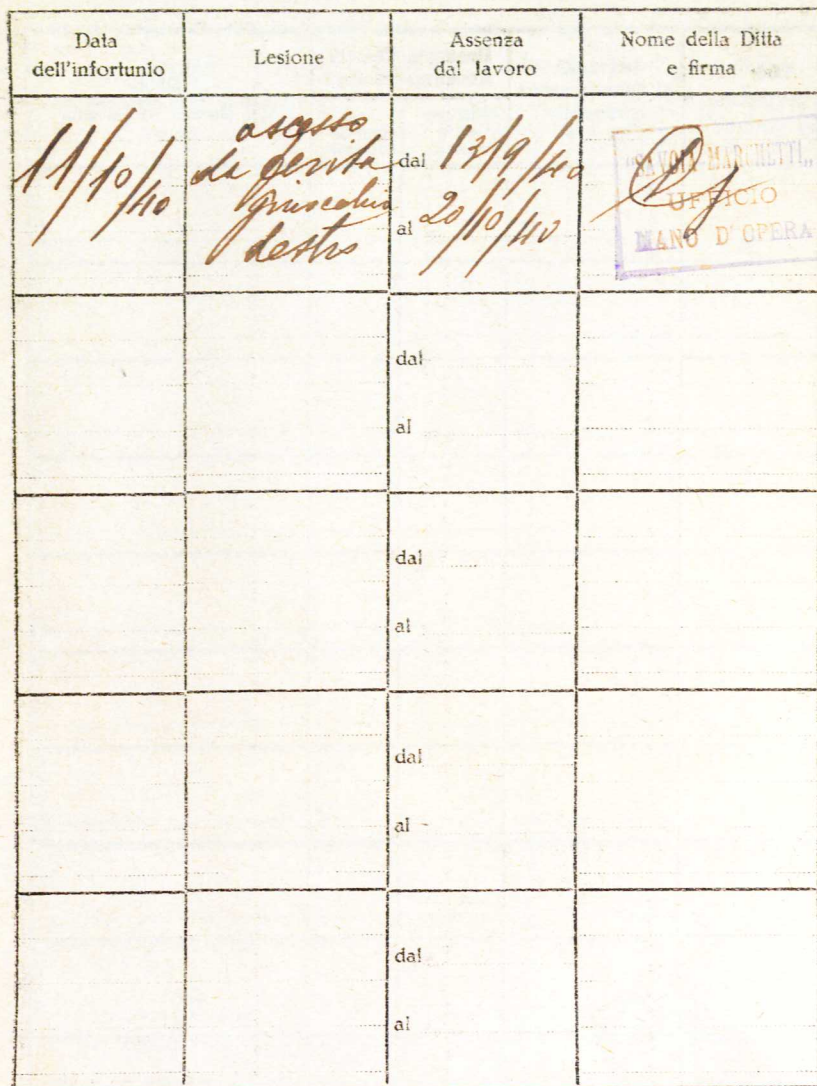 Data dell'infortunio
Lesione
Assenza dal lavoro
Nome della Ditta e firma
11/10/40
ascesso
da ferita
ginocchio
destro
dal 13/9/40
al 20/10/40
"SAVOIA MARCHETTI"
UFFICIO
MANO D'OPERA
dal
al
dal
al
dal
al
dal
al